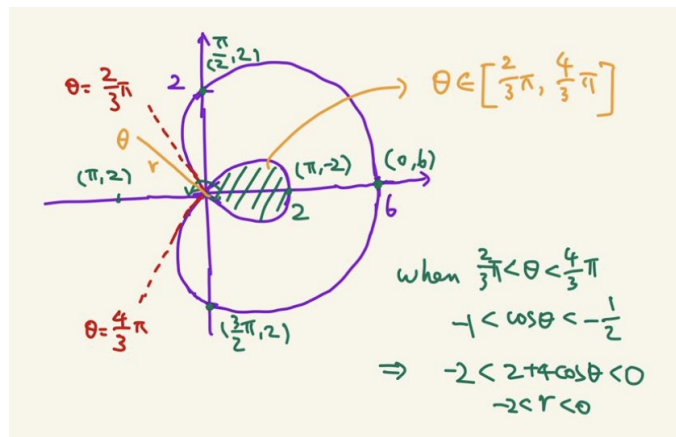 (π/2, 2)
θ = 2/3 π
2
θ ∈ [2/3 π, 4/3 π]
θ
r
(π, 2)
(π, -2)
(0, 6)
2
6
θ = 4/3 π
(3/2 π, 2)
when 2/3 π < θ < 4/3 π
-1 < cosθ < -1/2
⇒ -2 < 2+4cosθ < 0
-2 < r < 0